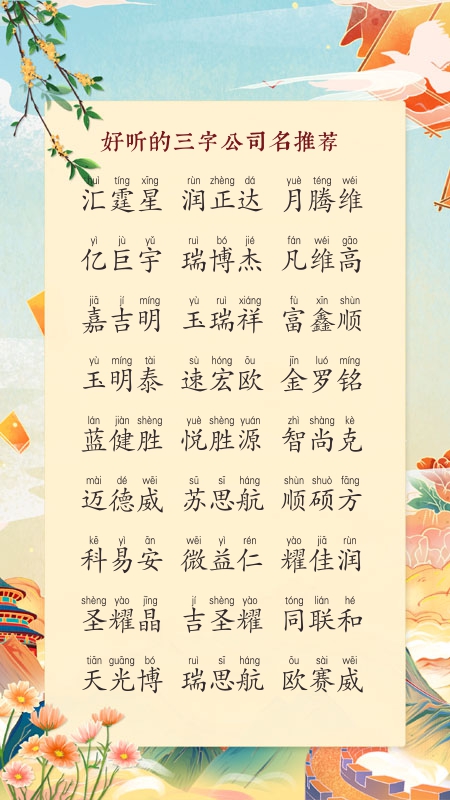 好听的三字公司名推荐
huì tíng xīng rùn zhèng dá yuè téng wéi
汇霆星 润正达 月腾维
yì jù yǔ ruì bó jié fán wéi gāo
亿巨宇 瑞博杰 凡维高
jiā jí míng yù ruì xiáng fù xīn shùn
嘉吉明 玉瑞祥 富鑫顺
yù míng tài sù hóng ōu jīn luó míng
玉明泰 速宏欧 金罗铭
lán jiàn shèng yuè shèng yuán zhì shàng kè
蓝健胜 悦胜源 智尚克
mài dé wēi sū sī háng shùn shuò fāng
迈德威 苏思航 顺硕方
kē yì ān wēi yì rén yào jiā rùn
科易安 微益仁 耀佳润
shèng yào jīng jí shèng yào tóng lián hé
圣耀晶 吉圣耀 同联和
tiān guāng bó ruì sī háng ōu sài wēi
天光博 瑞思航 欧赛威